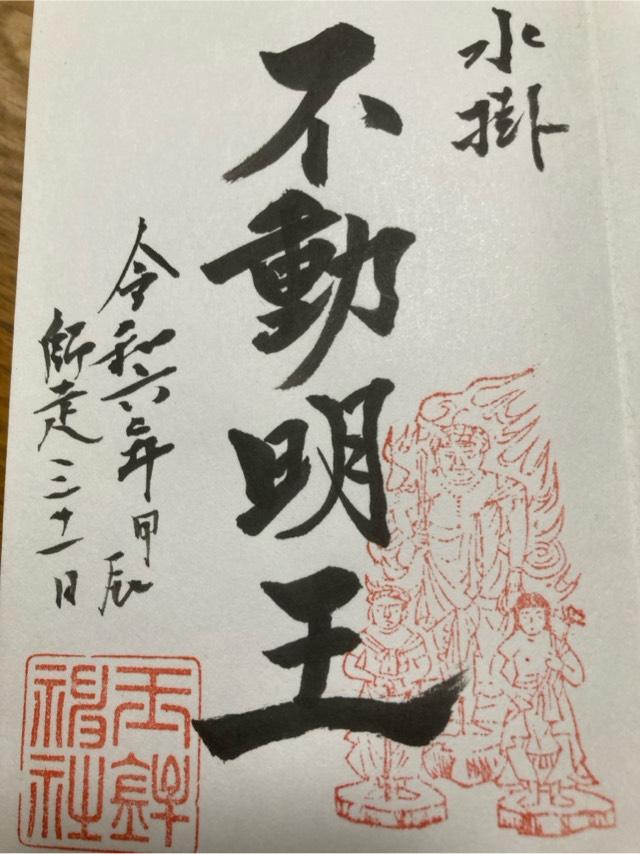 水掛
不動明王
令和六年甲辰
師走三十一日
玉鉾
神社